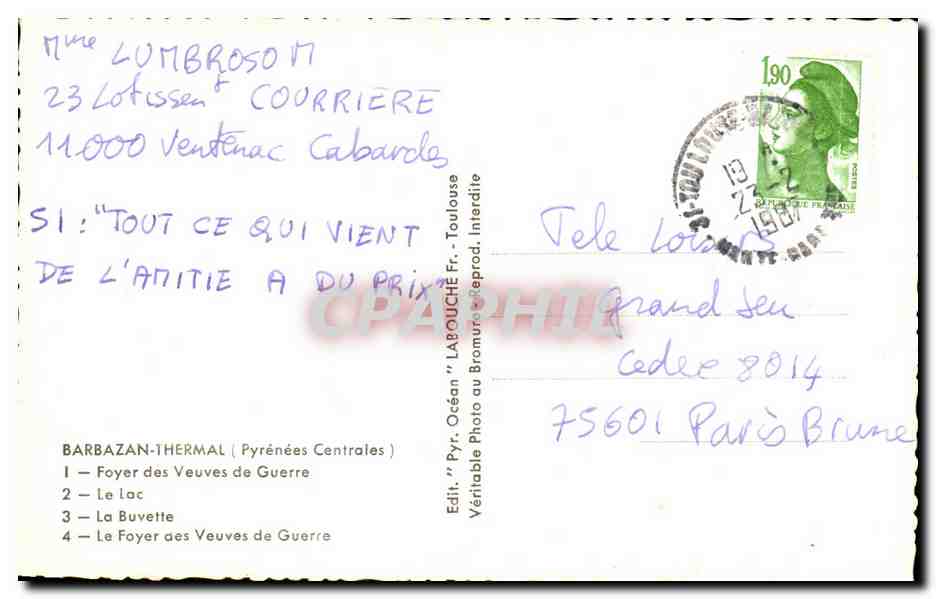 Mme LUMBROSO M
23 Lotissent COURRIERE
11.000 Ventenac Cabardes
SI : "TOUT CE QUI VIENT
DE L'AMITIE A DU PRIX"
BARBAZAN-THERMAL ( Pyrénées Centrales )
1 — Foyer des Veuves de Guerre
2 — Le Lac
3 — La Buvette
4 — Le Foyer des Veuves de Guerre
Edit. " Pyr. Océan " LABOUCHE Fr. - Toulouse
Véritable Photo au Bromure - Reprod. Interdite
1,90
POSTES
REPUBLIQUE FRANÇAISE
31-TOULOUSE
19 H
23-2
1987
HAUTE-GARONNE
Tele Loisirs
Grand Jeu
Cedex 8014
75601 Paris Brune
CPAPHIL